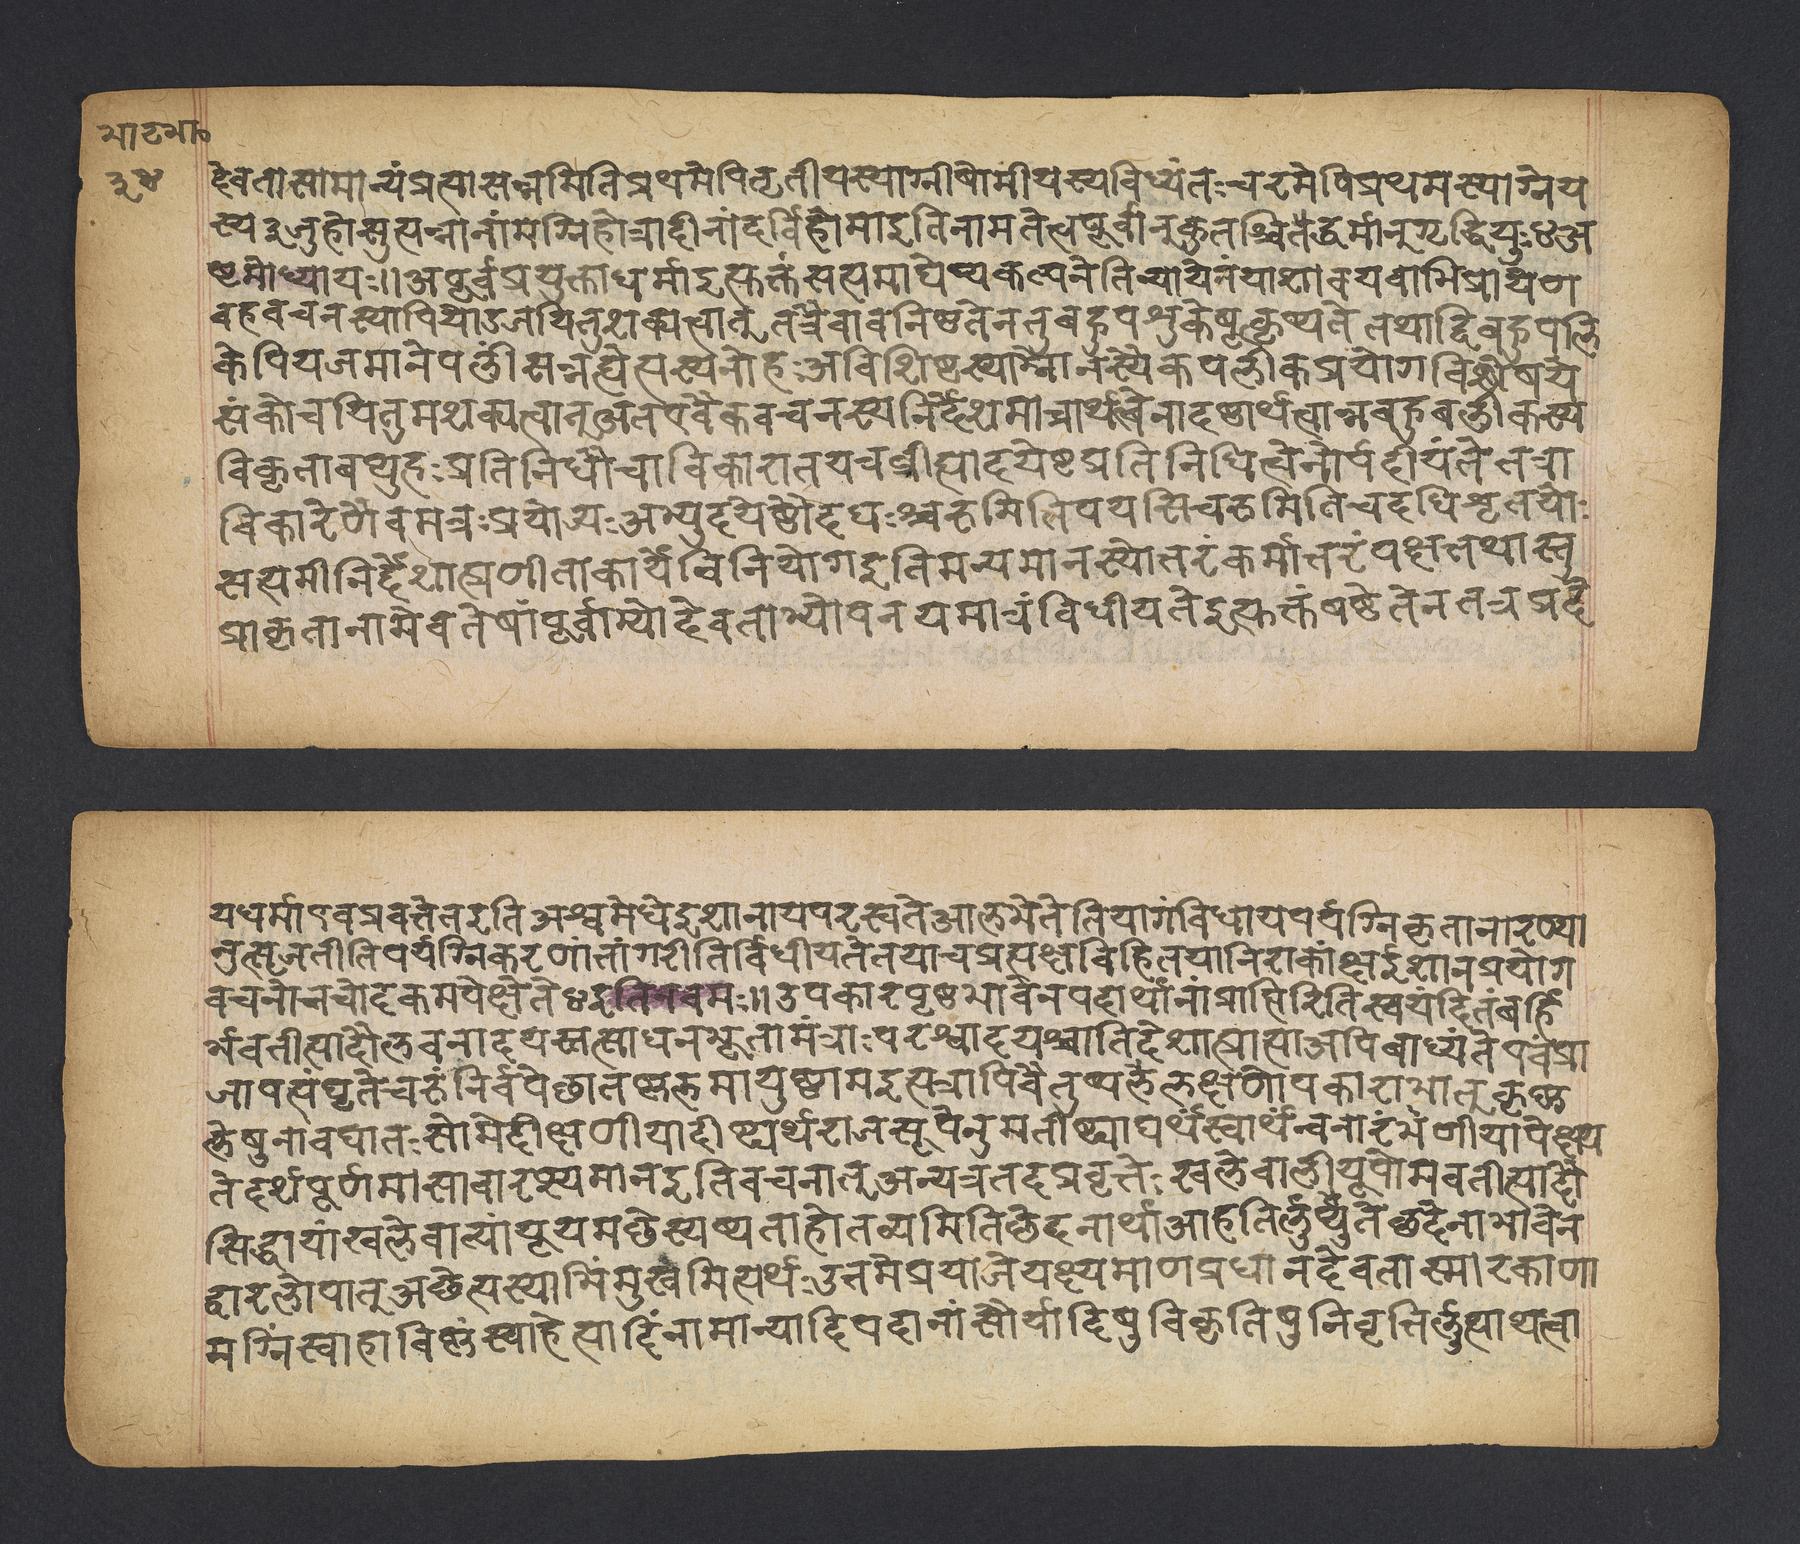 भाटभा॰
३४
देवतासामान्यंप्रत्यासन्नमितिप्रथमेपितृतीयस्याग्नीषोमीयस्यविध्यंतःचरमेपिप्रथमस्याग्नेय
स्य३जुहोत्युत्पन्नानांमग्निहोत्रादीनांदर्विहोमाइतिनामतेत्वपूर्वानुकुतश्चित्तैद्धर्मानुगृद्धियुः४अ
ष्टमोध्यायः॥अपूर्वप्रयुक्ताधर्माइत्युक्तंसत्यमाघेप्यकल्पनेतिन्यायेनंयाशावयवाभिप्रायेण
बहुवचनस्यापियोऽजयितुशक्यत्वात् तत्रैवावतिष्ठतेनतुबहुपशुकेषूत्कृष्यते तथाहिबहुपत्नि
केपियजमानेपत्नींसन्नह्येत्यस्यनोहःअविशिष्टस्याम्नानस्यैकपत्नीकप्रयोगविशेषेय
संकोचयितुमशक्यत्वात्अतएवैकवचनस्यनिर्देशमात्रार्थत्वेनादृष्टार्थत्वान्नबहुबत्नीकस्य
विकृतावप्युहःप्रतिनिधौचाविकारातयवव्रीह्यादयेष्टप्रतिनिधित्वेनोपदीयंतेतत्रा
विकारेणैवमत्रःप्रयोज्यःअभ्युदयेष्टौदधःश्चरुमितिपयसिचरुमितिचदधिशृतयोः
सप्तमीनिर्द्देशात्प्रणीताकार्येविनियोगइतिमन्यमानस्योतरंकर्मांतरंपक्षतथास्तु
प्राकृतानामेवतेषांपूर्वाभ्योदेवताभ्योपनयमात्रंविधीयतेइत्युक्तंषष्ठेतेनतत्रप्रदे
यधर्माएवप्रवर्त्ततेतइतिअश्वमेधेइशानायपरस्वतआलभेतेतियागंविधायपर्यग्निकृतानारण्या
नुत्सृजतीतिपर्यग्निकरणातांगरीतिर्विधीयतेतयाचप्रत्यक्षविहितयानिराकांक्षईशानप्रयोग
वचनोनचोदकमपेक्षते४इतिनवमः॥उपकारपृष्ठभावेनपदार्थानांप्राप्तिरितिस्वयंदितंबर्हि
र्भवतीत्यादौलवनादयस्तत्साधनभूतामंत्राःपरश्वादयश्चातिदेशात्प्राप्ताअपिबाध्यंतेएवंप्रा
जापत्यंघृतेचरुंनिर्वपेछातकृष्णलमायुष्कामइत्यत्रापिवैतुष्यलक्षणोपकाराभातृकृष्ण
लेषुनावघातःसोमेदीक्षणीयादीष्ट्यर्थराजसूयेनुमतीष्ट्याद्यर्थंस्वार्थंन्वनारंभणीयापेक्ष्य
तेदर्शपूर्णमासावारप्स्यमानइतिवचनात्अन्यत्रतदप्रवृत्तेःखलेवालीयूपोभवतीत्यादौ
सिद्धायांखलेवाल्यांयूयमछेस्यष्यताहोतव्यमितिछेदनार्थाआहतिर्लुप्यतेछदनाभावेन
द्वारलोपात्अछेत्यस्याभिमुखमित्यर्थःउत्तमेप्रयाजेयक्ष्यमाणप्रधानदेवतास्मारकाणा
मग्निंस्वाहाविष्णुंस्वाहेत्यादिंनामान्यादिपदानांसौर्यादिषुविकृतिषुनिवृत्तिर्लुप्तार्थत्वा